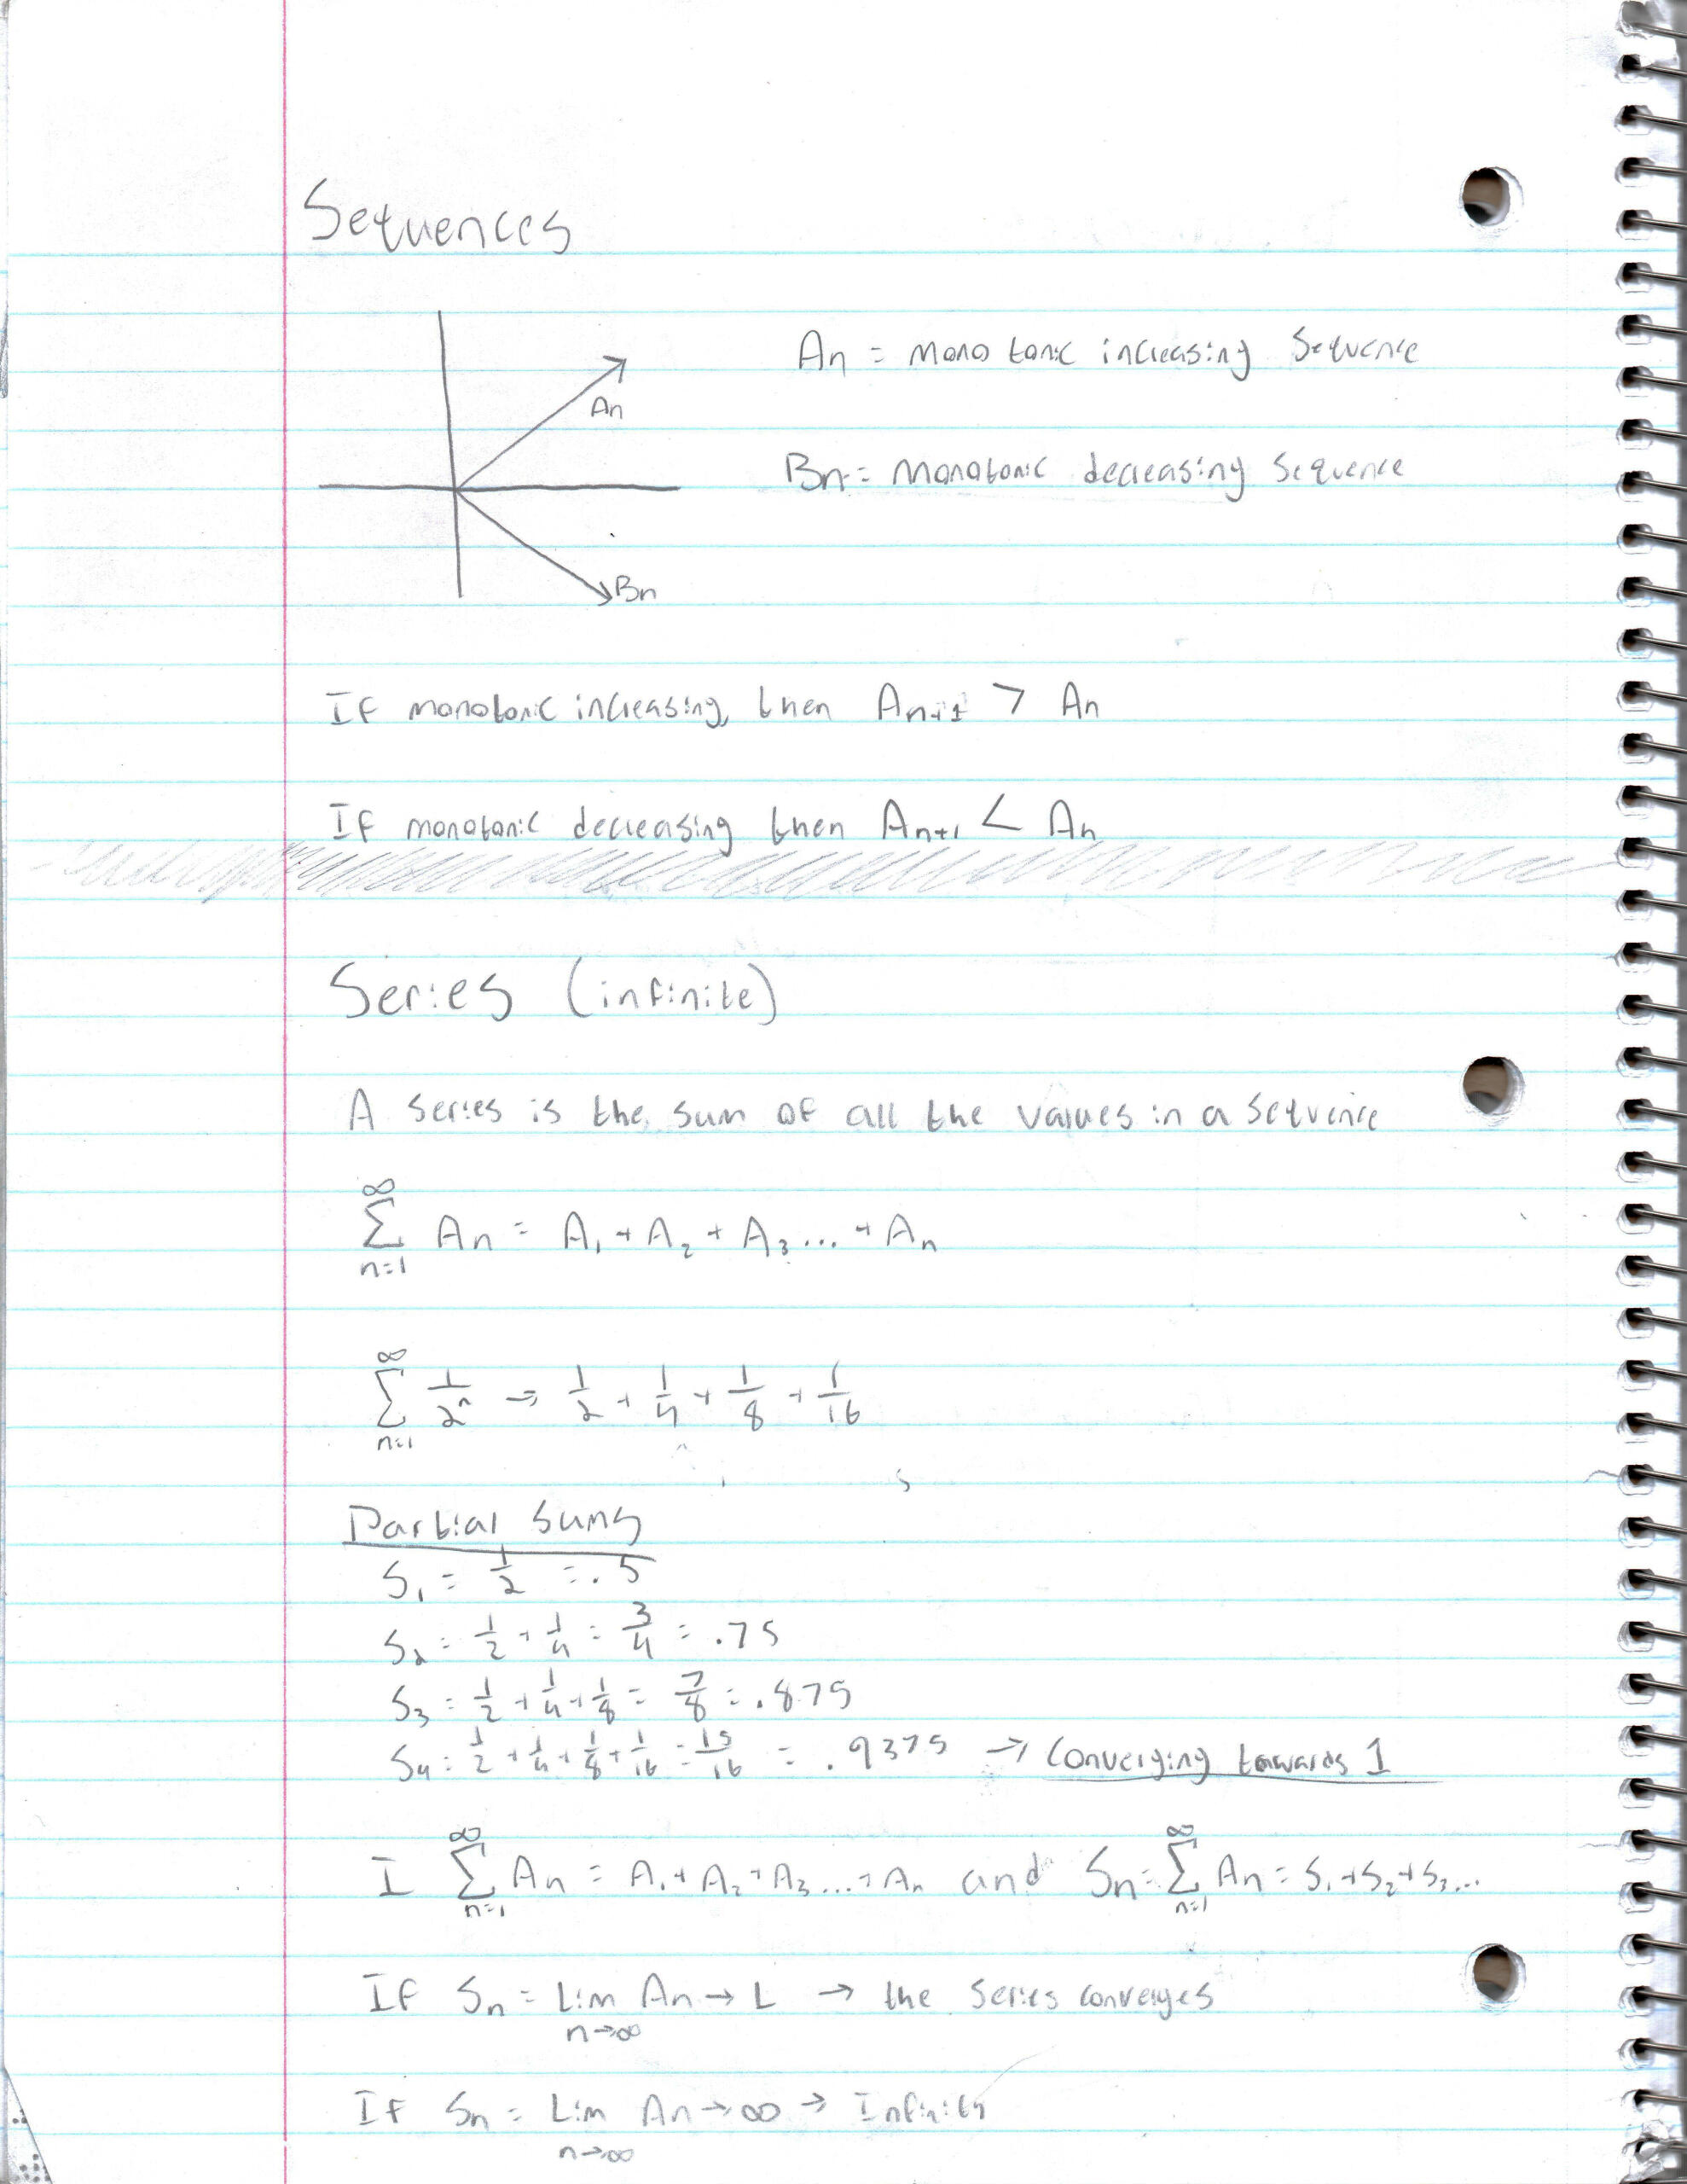 Sequences
An = monotonic increasing sequence
An
Bn = monotonic decreasing sequence
Bn
If monotonic increasing, then An+1 > An
If monotonic decreasing then An+1 < An
Series (infinite)
A series is the sum of all the values in a sequence
∞
Σ An = A1 + A2 + A3... + An
n=1
∞
Σ 1/2^n → 1/2 + 1/4 + 1/8 + 1/16
n=1
Partial Sums
S1 = 1/2 = .5
S2 = 1/2 + 1/4 = 3/4 = .75
S3 = 1/2 + 1/4 + 1/8 = 7/8 = .875
S4 = 1/2 + 1/4 + 1/8 + 1/16 = 15/16 = .9375 → Converging towards 1
∞ ∞
I Σ An = A1 + A2 + A3... + An and Sn = Σ An = S1 + S2 + S3...
n=1 n=1
If Sn = Lim An → L → the series converges
n→∞
If Sn = Lim An → ∞ → Infinity
n→∞